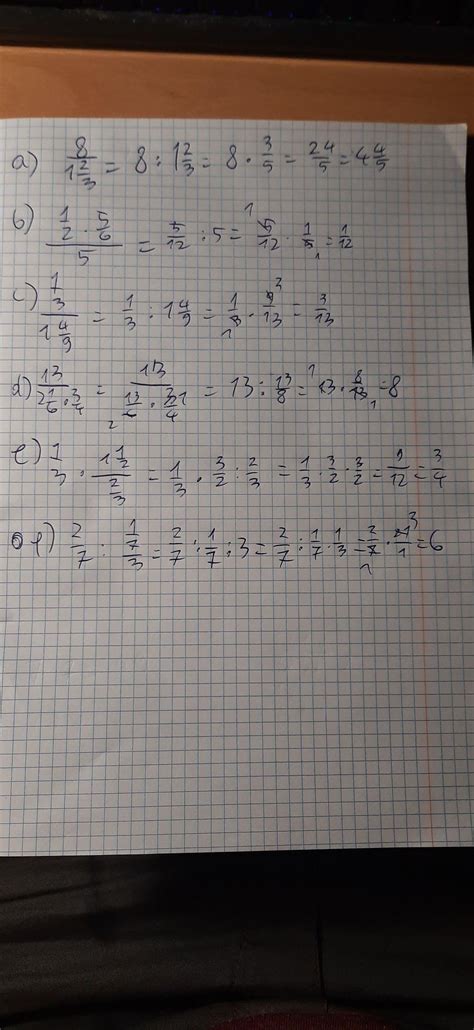 a) 8/1 2/3 = 8 : 1 2/3 = 8 · 3/5 = 24/5 = 4 4/5
b) (1/2 · 5/6)/5 = 5/12 : 5 = 5/12 · 1/5 = 1/12
c) (1/3)/(1 4/9) = 1/3 : 1 4/9 = 1/3 · 9/13 = 3/13
d) 13/(2 1/6 · 3/4) = 13/(13/6 · 3/4) = 13 : 13/8 = 13 · 8/13 = 8
e) 1/3 · (1 1/2)/(2/3) = 1/3 · 3/2 : 2/3 = 1/3 · 3/2 · 3/2 = 9/12 = 3/4
f) 2/7 : (1/7)/3 = 2/7 : 1/7 : 3 = 2/7 : 1/7 · 1/3 = 2/7 · 21/1 = 6